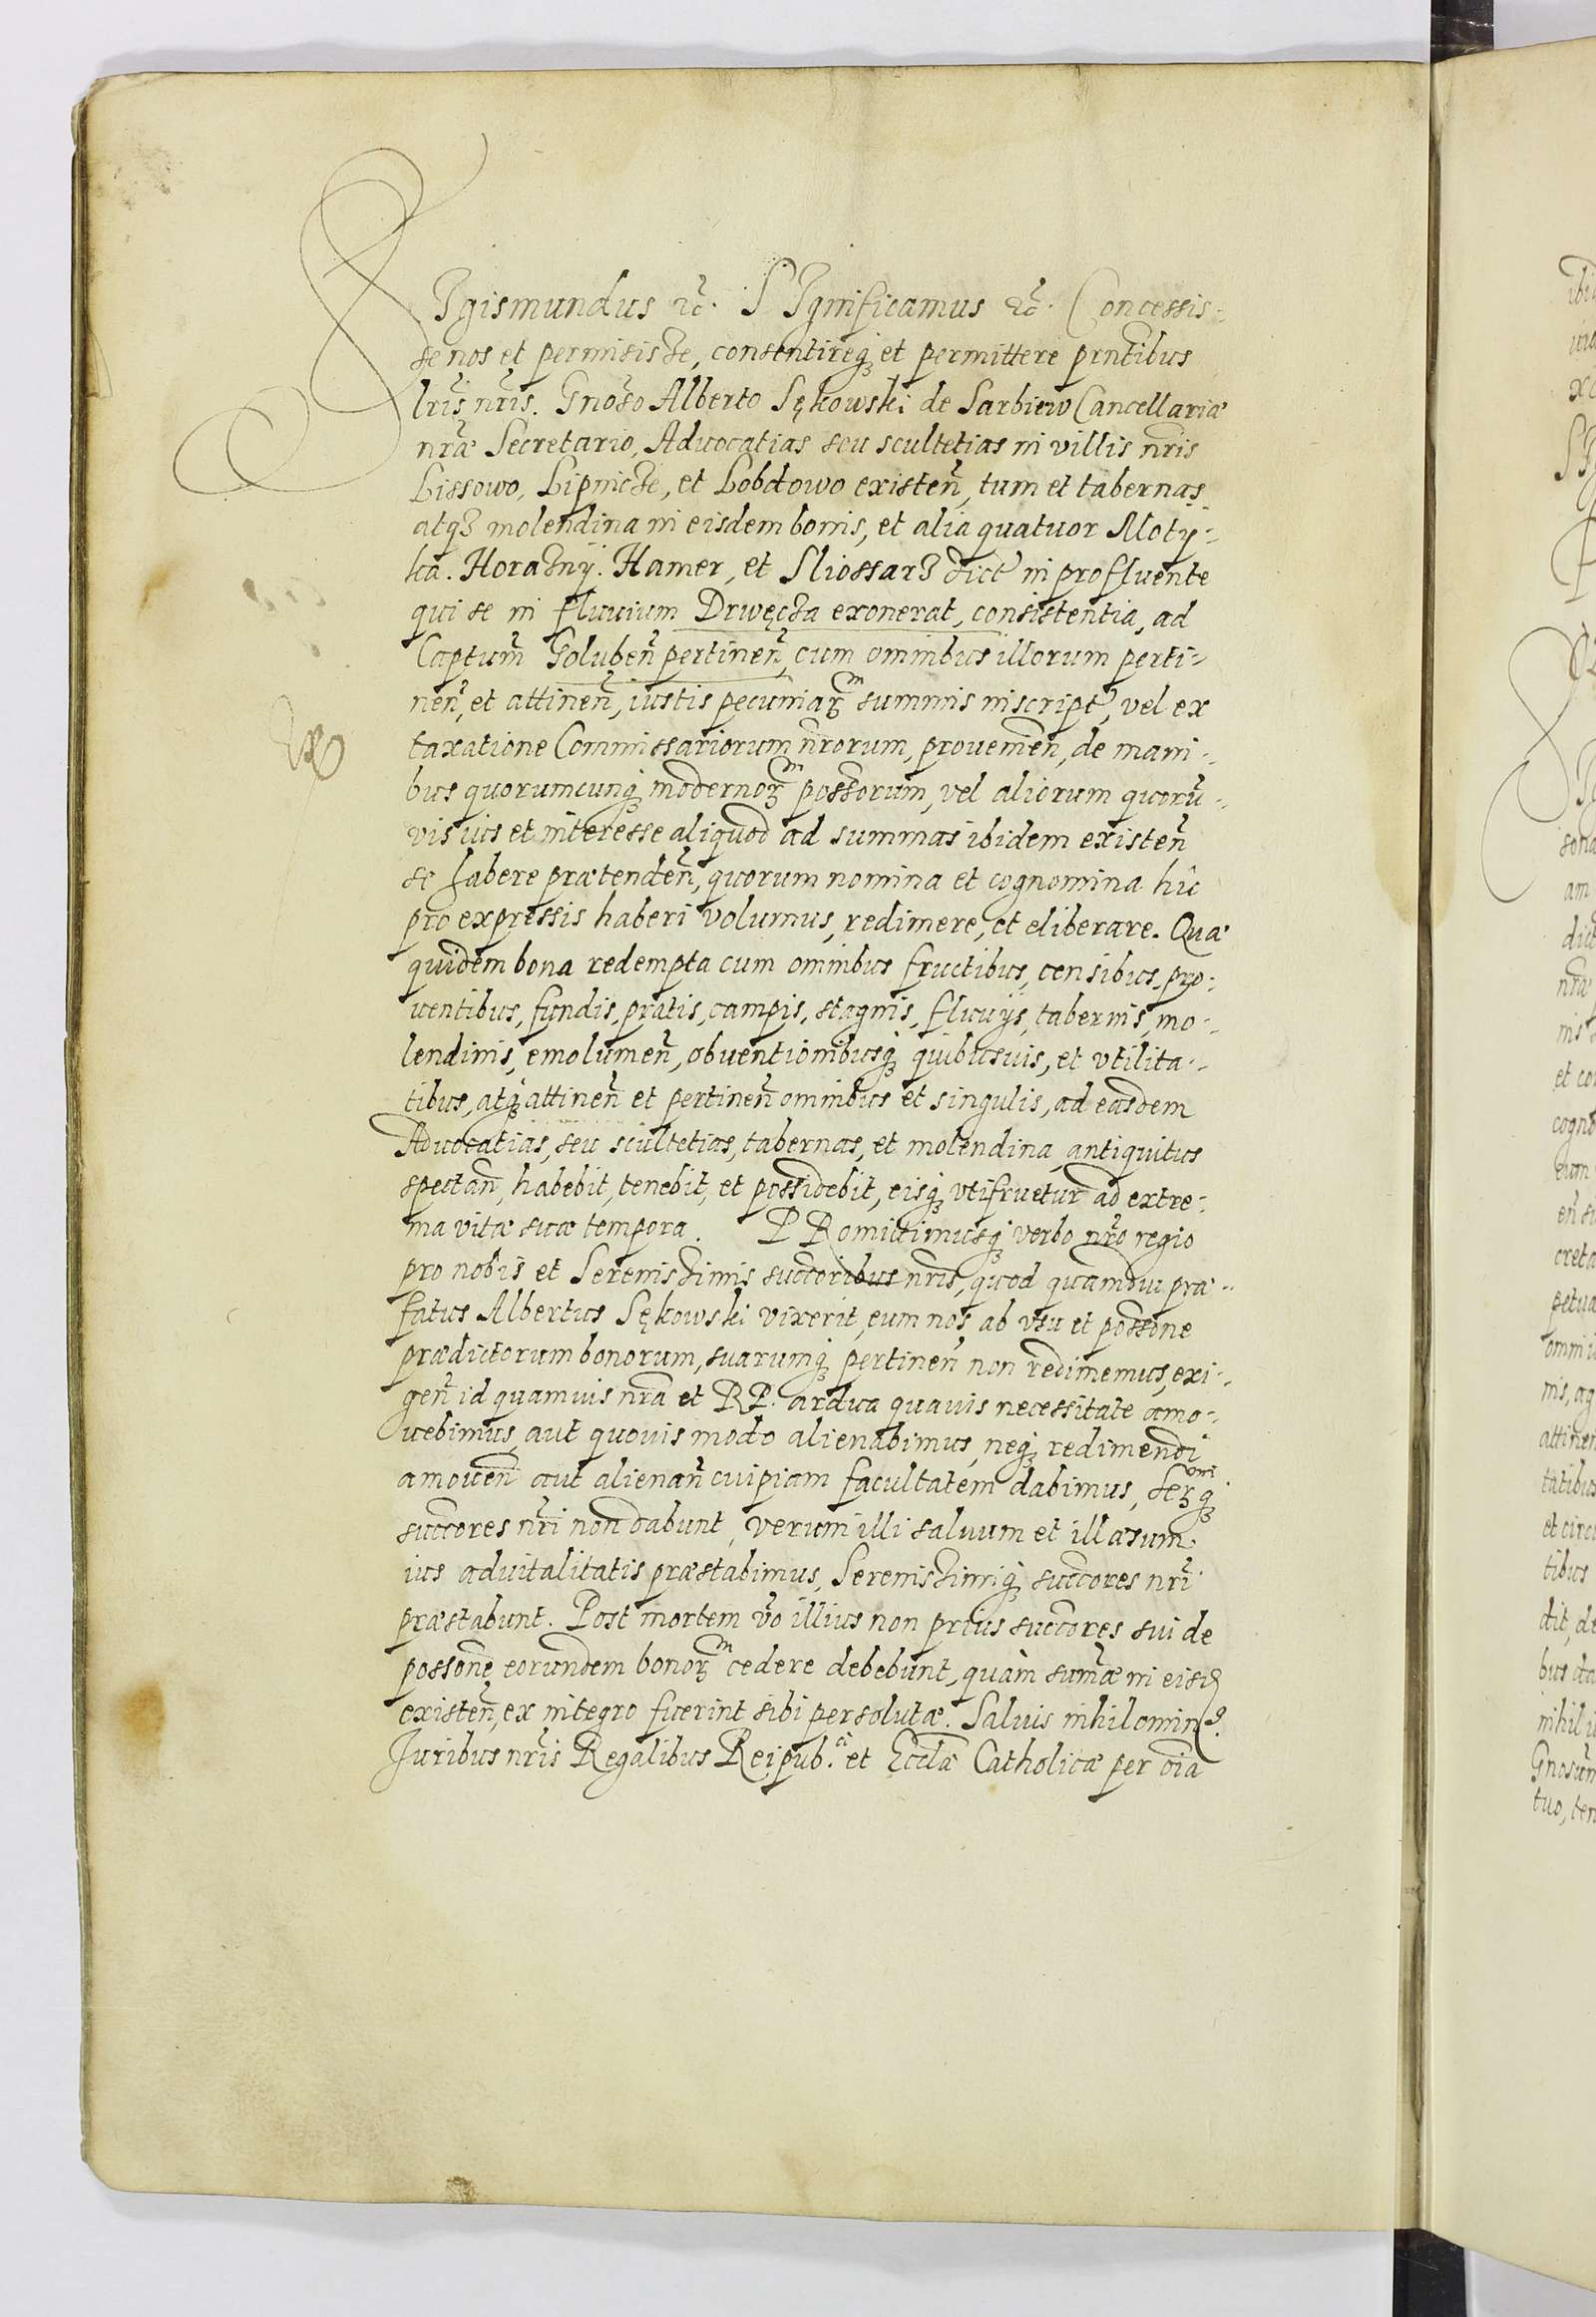 SIgismundus &c̃. SIgnificamus &c̃. Concessis-
se nos et permisisse, consentireq̃ et permittere pñtibus
lr̃is nr̃is. Gnoso Alberto Sękowski de Sarbiewo Cancellariæ
nr̃æ Secretario, Advocatias seu scultetias in villis nr̃is
Lissowo, Lipnicze, et Lobdowo existeñ, tum et tabernas
atq̃ molendina in eisdem bonis, et alia quatuor Moty-
ka. Horazny. Hamer, et Sliossarz dict̃ in profluente
qui se in fluuium Drwęcza exonerat, consistentia, ad
Captum̃ Golubeñ pertineñ, cum omnibus illorum perti-
neñ, et attineñ, iustis pecuniaꝝ summis inscript̃, vel ex
taxatione Commissariorum nr̃orum, proueniẽn, de mani-
bus quorumcunq̃ modernoꝝ possorum, vel aliorum quorũ-
vis ius et interesse aliquod ad summas ibidem existeñ
se habere prætendeñ, quorum nomina et cognomina hîc
pro expressis haberi volumus, redimere, et eliberare. Quæ
quidem bona redempta cum omnibus fructibus, censibus, pro-
uentibus, fundis, pratis, campis, stagnis, fluuijs, tabernis, mo-
lendinis, emolumeñ, obuentionibusq̃ quibusuis, et vtilita-
tibus, atq̃ attineñ et pertineñ omnibus et singulis, ad easdem
Advocatias, seu scultetias, tabernas, et molendina, antiquitus
spectañ, habebit, tenebit, et possidebit, eisq̃ vtifruetur ad extre-
ma vitæ suæ tempora. PRomittimusq̃ verbo nr̃o regio
pro nobis et Serenissimis succoribus nr̃is, quod quamdiu præ-
fatus Albertus Sękowski vixerit, eum nos, ab vsu et possone
prædictorum bonorum, suarumq̃ pertineñ non redimemus, exi-
geñ id quamuis nr̃a et RP. ardua quauis necessitate amo-
uebimus, aut quouis modo alienabimus, neq̃ redimendi
amoueñ aut alienañ cuipiam facultatem dabimus, Serm̃iq̃
succores nr̃i non dabunt, verum illi saluum et illæsum
ius aduitalitatis præstabimus, Serenissimiq̃ succores nr̃i
præstabunt. Post mortem ṽo illius non prius succores sui de
possone eorundem bonoꝝ cedere debebunt, quàm sum̃æ in eisd̃
existeñ, ex integro fuerint sibi persolutæ. Saluis nihilomin⁹
Juribus nr̃is Regalibus Reipub.ᶜᵉ et Eccl̃æ Catholicæ per õia